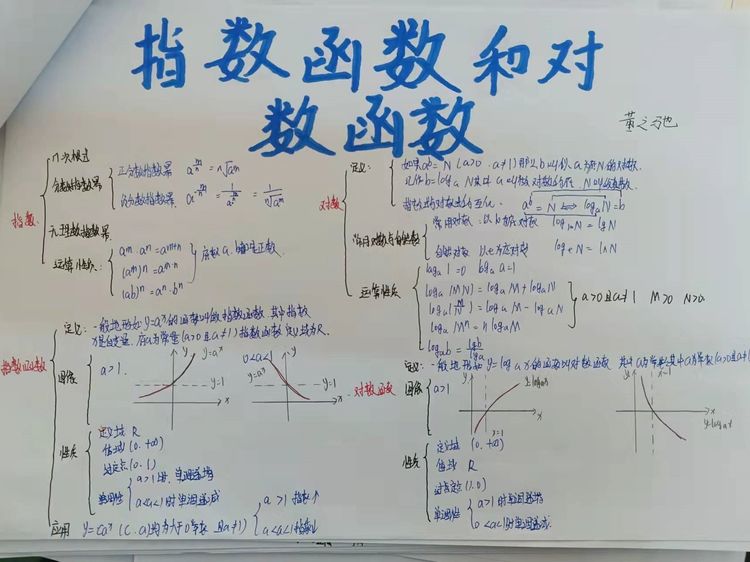 指数函数和对
数函数
指数
n次根式
分数指数幂
正分数指数幂 a^(m/n) = n√a^m
负分数指数幂 a^(-m/n) = 1/a^(m/n) = 1/n√a^m
无理数指数幂
运算性质:
a^m·a^n=a^(m+n)
(a^m)^n=a^(m·n)
(ab)^n=a^n·b^n
底数a、b都是正数.
对数
定义:
如果a^b=N (a>0 a≠1)
指数式与对数式
a^b=N ⟺ log_a N=b
常用对数与自然对数
常用对数: 以 log_10 N = lg N
自然对数 以e为底对数 log e N = ln N
运算性质
log_a 1=0 log_a a=1
log_a(MN)=log_a M+log_a N
log_a(M/N)=log_a M-log_a N
log_a M^n=n log_a M
log_a b=lg b/lg a
a>0且a≠1 M>0 N>0
指数函数
定义: 一般地形如y=a^x的函数叫做指数函数 其中指数
x是自变量. 底a为常量(a>0且a≠1)指数函数定义域为R.
图像
a>1.
y
y=a^x
y=1
x
0<a<1
y=a^x
y
y=1
x
性质
定义域 R
值域 (0.+∞)
过定点 (0.1)
单调性
a>1时.单调递增
a<a<1时单调递减
应用 y=ca^x (c.a)均为大于0常数 且a≠1)
a>1指数↑
a<a<1指数↓
对数函数
定义: 一般地形如y=log_a x的函数叫对数函数
图像
a>1
y
y=log_a x
x
x=1
y
x=1
x
y=log_a x
性质
定义域 (0.+∞)
值域 R
过定点 (1.0)
单调性
a>1时单调递增
0<a<1时单调递减.